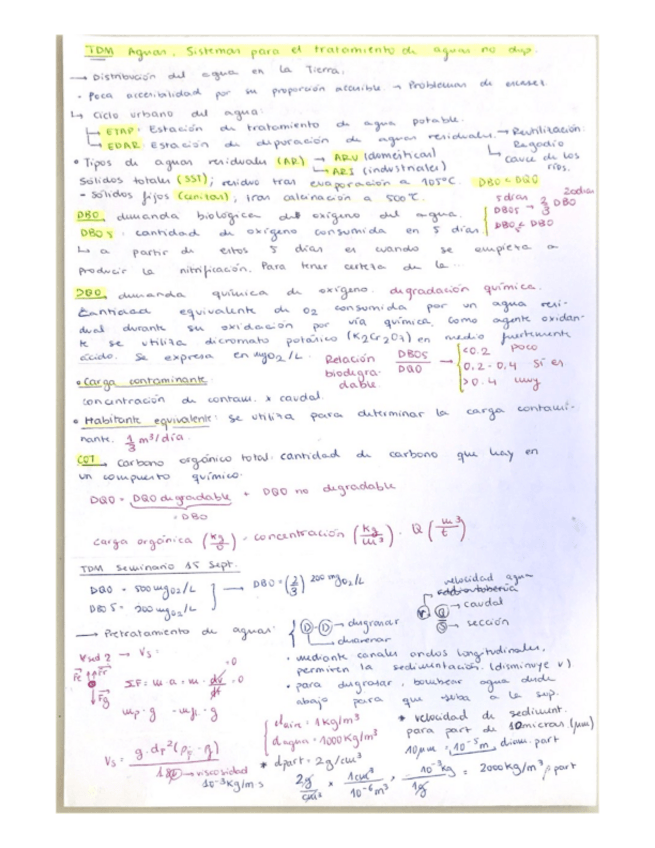 TDM Aguas. Sistemas para el tratamiento de aguas no dup.
→ Distribución del agua en la Tierra.
· Poca accesibilidad por su proporción accesible → Problemas de escasez
↳ Ciclo urbano del agua:
↳ ETAP: Estación de tratamiento de agua potable.
↳ EDAR: Estación de depuración de aguas residuales. → Reutilización
Regadío
↳ cauce de los ríos.
• Tipos de aguas residuales (AR) → ARU (domésticas)
↳ ARI (industriales)
Sólidos totales (SST): residuo tras evaporación a 105ºC. DBO < DQO
- Sólidos fijos (cenizas): tras calcinación a 500ºC.
DBO: demanda biológica del oxígeno del agua.
DBO5: cantidad de oxígeno consumida en 5 días.
5 días 20 días
DBO5 → 2/3 DBO
DBO5 < DBO
↳ a partir de estos 5 días es cuando se empieza a
producir la nitrificación. Para tener certeza de la ...
DQO: demanda química de oxígeno. degradación química.
Cantidad equivalente de O2 consumida por un agua resi-
dual durante su oxidación por vía química, como agente oxidan-
te se utiliza dicromato potásico (K2Cr2O7) en medio fuertemente
ácido. Se expresa en mgO2/L.
Relación biodegra-
dable.
DBO5/DQO → <0.2 poco
0.2-0.4 sí es
>0.4 muy
• Carga contaminante:
concentración de contam. x caudal.
• Habitante equivalente: se utiliza para determinar la carga contami-
nante. 1/3 m³/día.
COT: Carbono orgánico total: cantidad de carbono que hay en
un compuesto químico.
DQO = DQO degradable + DQO no degradable
= DBO
carga orgánica (kg/) = concentración (kg/m³) · Q (m³/t)
TDM Seminario 15 Sept.
DQO = 500 mgO2/L
DBO5 = 200 mgO2/L
→ DBO = (2/3) 200 mgO2/L
velocidad agua
V Q → caudal
S → sección
→ Pretratamiento de aguas:
D-D → desgrasar
→ desarenar
· mediante canales anchos longitudinales,
permiten la sedimentación. (disminuye v)
· para desgrasar, bombear agua desde
abajo para que suba a la sup.
Vs:
Fr
Fe
Fg
ΣF = m · a = m · dv/dt = 0
mp · g - mf · g
Vs = g · dp² (ρp - ρf) / 18μ → viscosidad
10⁻³ kg/m·s
daire = 1 kg/m³
dagua = 1000 kg/m³
* velocidad de sediment.
para part de 10 micras (μm)
10 μm = 10⁻⁵ m diám. part
* dpart = 2 g/cm³
2g/cm³ x 1cm³/10⁻⁶ m³ x 10⁻³ kg/1g = 2000 kg/m³ ρ part